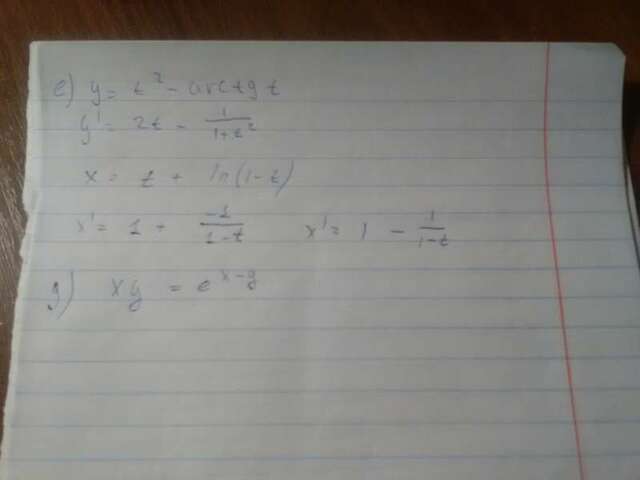 е) y = t² - arctg t
y' = 2t - 1/(1+t²)
x = t + ln(1-t)
x' = 1 + -1/(1-t) x' = 1 - 1/(1-t)
g) xy = e^(x-y)